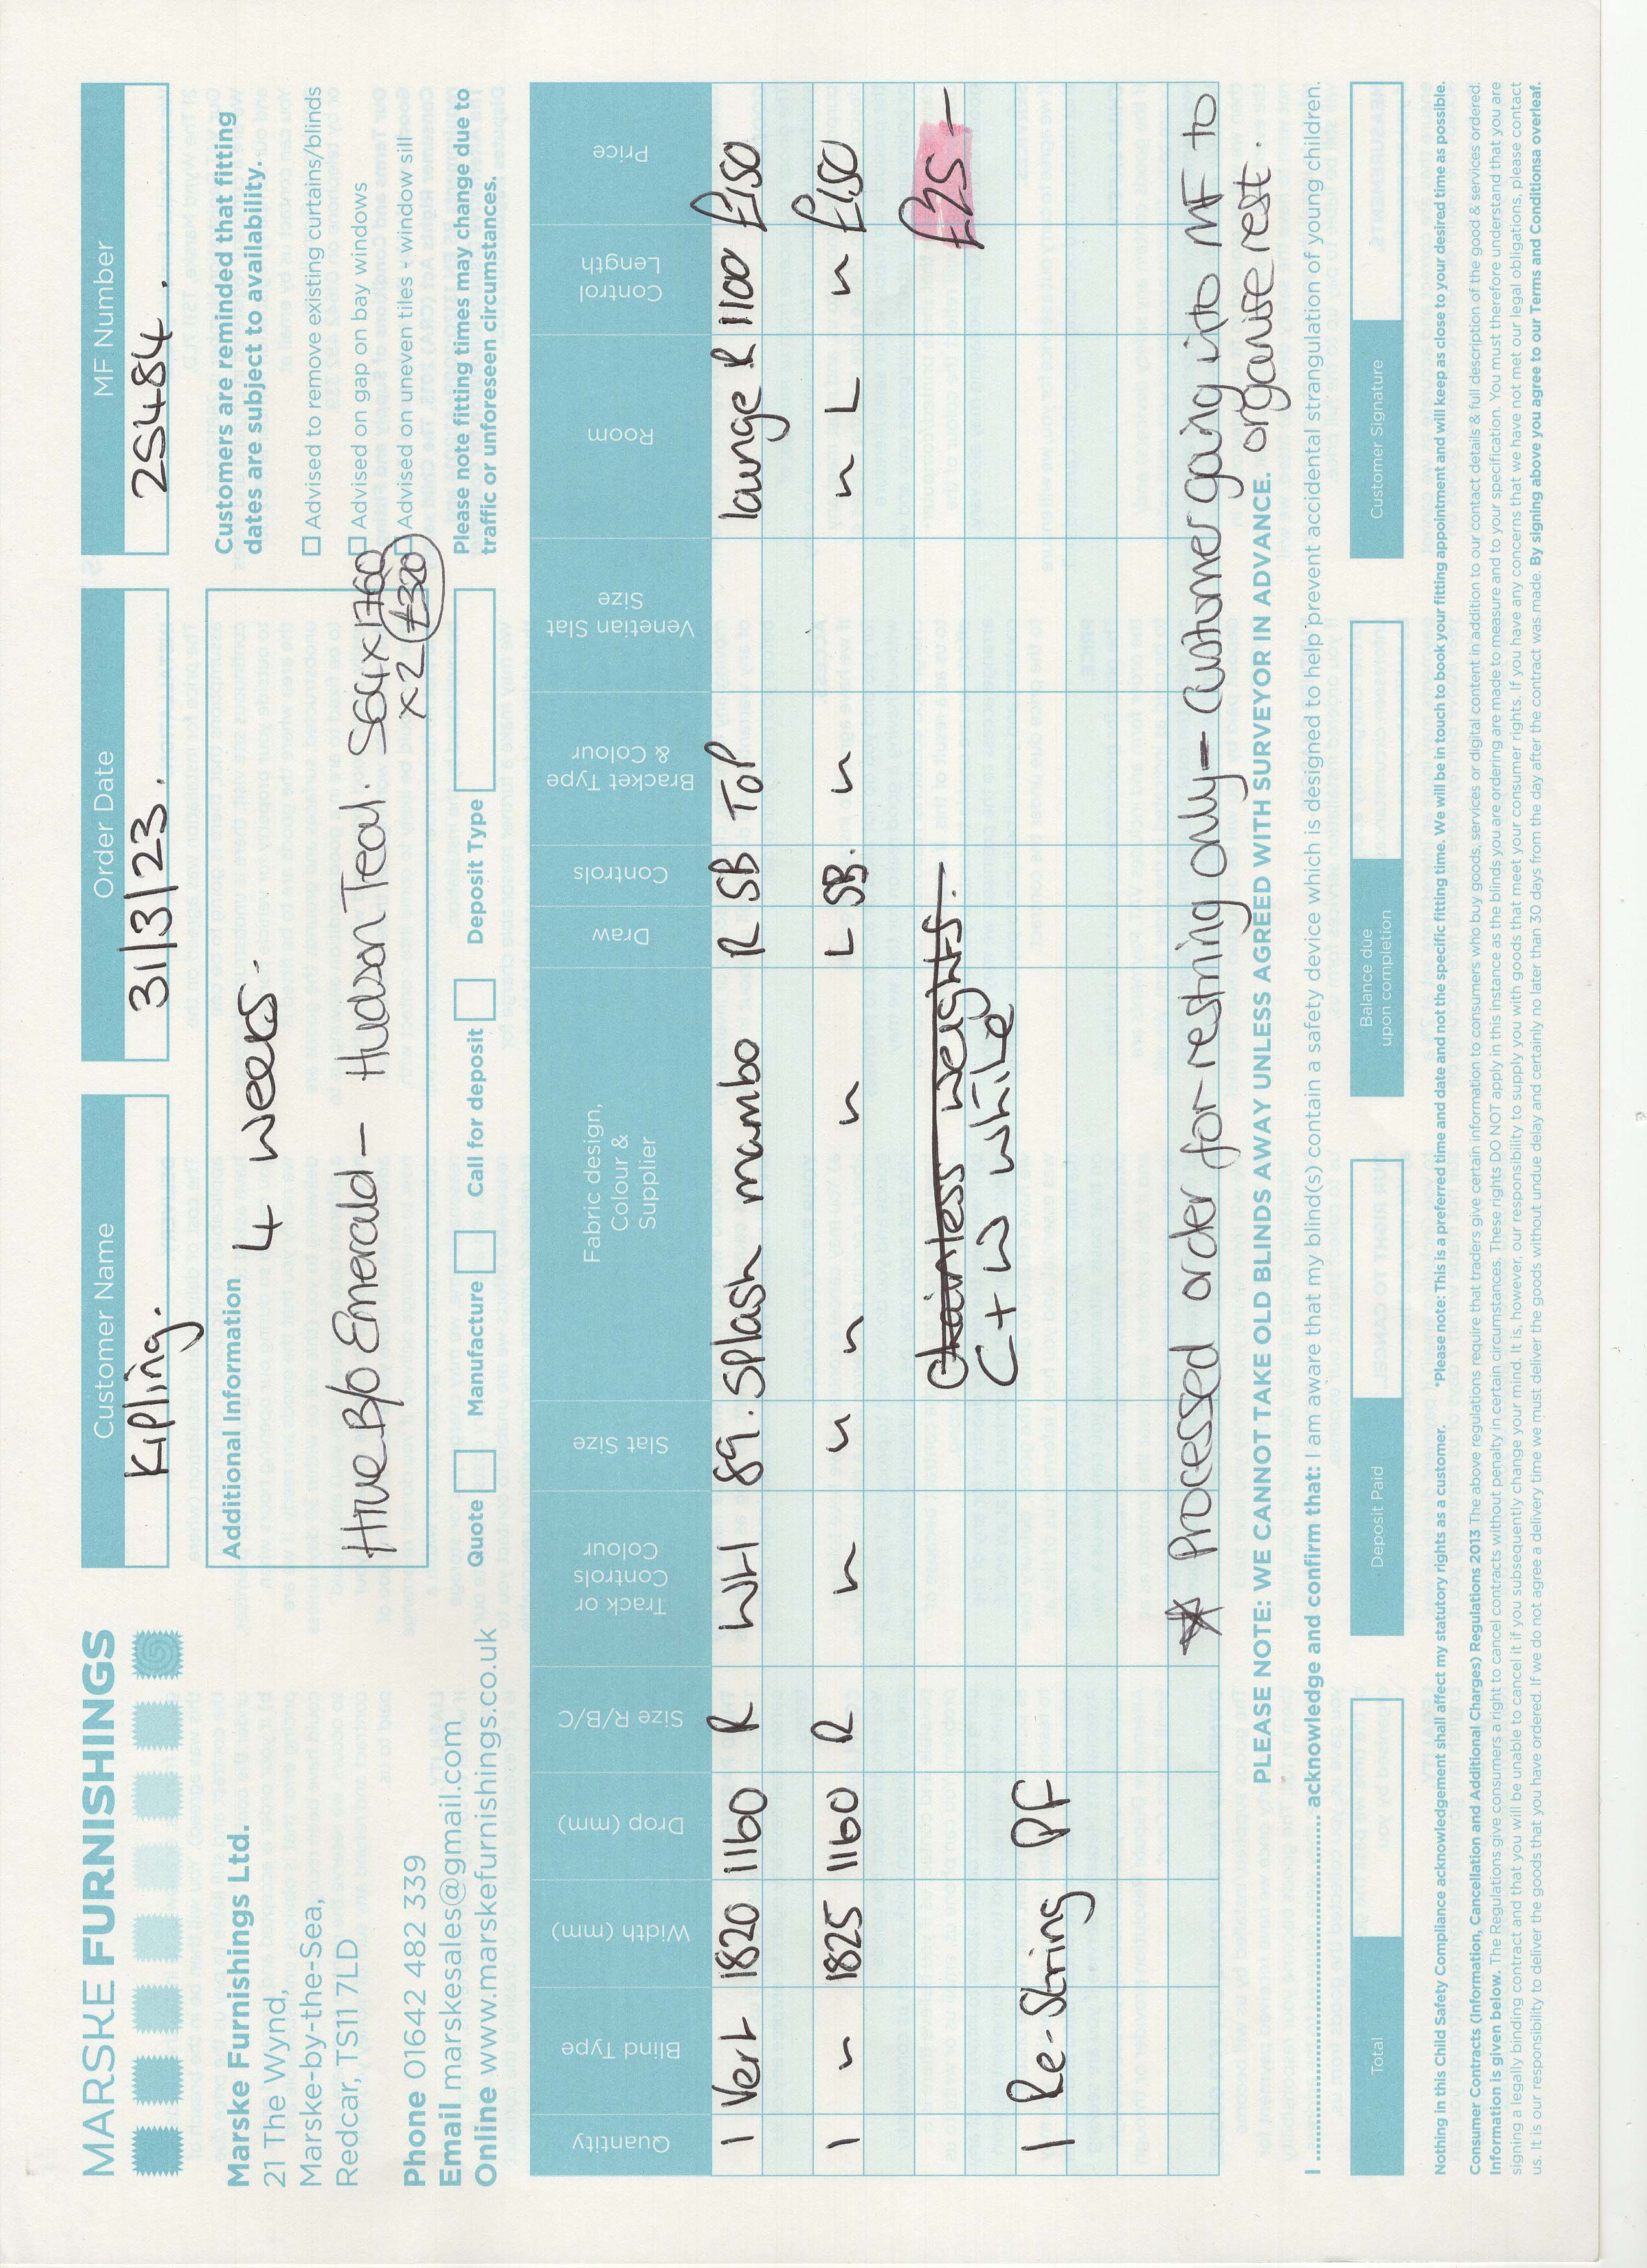 MARSKE FURNISHINGS
Marske Furnishings Ltd.
21 The Wynd,
Marske-by-the-Sea,
Redcar, TS11 7LD
Phone 01642 482 339
Email marskesales@gmail.com
Online www.marskefurnishings.co.uk
Customer Name
Kipling.
Order Date
31/3/23.
MF Number
25484.
Additional Information
4 weeks-
Hive B/O Emerald - Hudson Teal. 564x1760
x2 £320
Quote
Manufacture
Call for deposit
Deposit Type
Customers are reminded that fitting
dates are subject to availability.
Advised to remove existing curtains/blinds
Advised on gap on bay windows
Advised on uneven tiles - window sill
Please note fitting times may change due to
traffic or unforeseen circumstances.
Quantity
Blind Type
Width (mm)
Drop (mm)
Size R/B/C
Track or
Controls
Colour
Slat Size
Fabric design,
Colour &
Supplier
Draw
Controls
Bracket Type
& Colour
Venetian Slat
Size
Room
Control
Length
Price
1 Vert 1820 1160 R WH 89. Splash mambo R SB TOP lounge R 1100 £150
1 " 1825 1160 R " " " " L SB. " " L " £150
Chainless weights. £25 -
C+W white
1 Re-String PF
* Processed order for restring only - customer going into MF to
organise rest.
PLEASE NOTE: WE CANNOT TAKE OLD BLINDS AWAY UNLESS AGREED WITH SURVEYOR IN ADVANCE.
I ........................................ acknowledge and confirm that: I am aware that my blind(s) contain a safety device which is designed to help prevent accidental strangulation of young children.
Total
Deposit Paid
Balance due
upon completion
Customer Signature
Nothing in this Child Safety Compliance acknowledgement shall affect my statutory rights as a customer. *Please note: This is a preferred time and date and not the specific fitting time. We will be in touch to book your fitting appointment and will keep as close to your desired time as possible.
Consumer Contracts (Information, Cancellation and Additional Charges) Regulations 2013 The above regulations require that traders give certain information to consumers who buy goods, services or digital content in addition to our contact details & full description of the good & services ordered.
Information is given below. The Regulations give consumers a right to cancel contracts without penalty in certain circumstances. These rights DO NOT apply in this instance as the blinds you are ordering are made to measure and to your specification. You must therefore understand that you are
signing a legally binding contract and that you will be unable to cancel it if you subsequently change your mind. It is, however, our responsibility to supply you with goods that meet your consumer rights. If you have any concerns that we have not met our legal obligations, please contact
us. It is our responsibility to deliver the goods that you have ordered. If we do not agree a delivery time we must deliver the goods without undue delay and certainly no later than 30 days from the day after the contract was made. By signing above you agree to our Terms and Conditionsa overleaf.